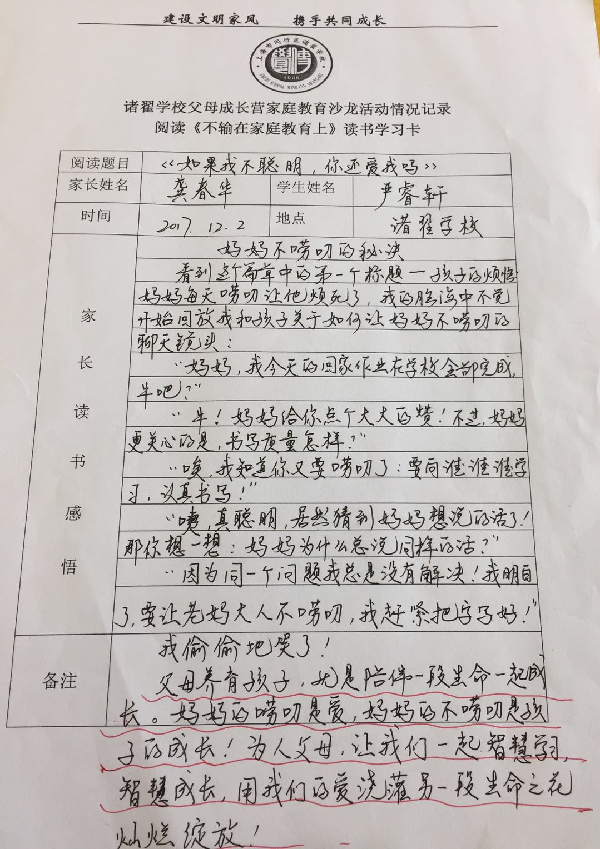 建设文明家风 携手共同成长
1906
诸翟学校父母成长营家庭教育沙龙活动情况记录
阅读《不输在家庭教育上》读书学习卡
阅读题目 <<如果我不聪明，你还爱我吗>>
家长姓名 龚春华 学生姓名 严睿轩
时间 2017 12.2 地点 诸翟学校
家长读书感悟
妈妈不唠叨的秘诀
看到这个篇章中的第一个标题—孩子的烦恼
妈妈每天唠叨让他烦死了，我的脑海中不觉
开始回放我和孩子关于如何让妈妈不唠叨的
聊天镜头：
“妈妈，我今天的回家作业在学校全部完成，
牛吧？”
“牛！妈妈给你点个大大的赞！不过，妈妈
更关心的是，书写质量怎样？”
“唉，我知道你又要唠叨了：要向谁谁谁学
习，认真书写！”
“咦，真聪明，居然猜到妈妈想说的话了！
那你想一想：妈妈为什么总说同样的话？”
“因为同一个问题我总是没有解决！我明白
了，要让老妈大人不唠叨，我赶紧把字写好！”
备注
我偷偷地笑了！
父母养育孩子，就是陪伴一段生命一起成
长。妈妈的唠叨是爱，妈妈的不唠叨是孩
子的成长！为人父母，让我们一起智慧学习，
智慧成长，用我们的爱浇灌另一段生命之花
灿烂绽放！